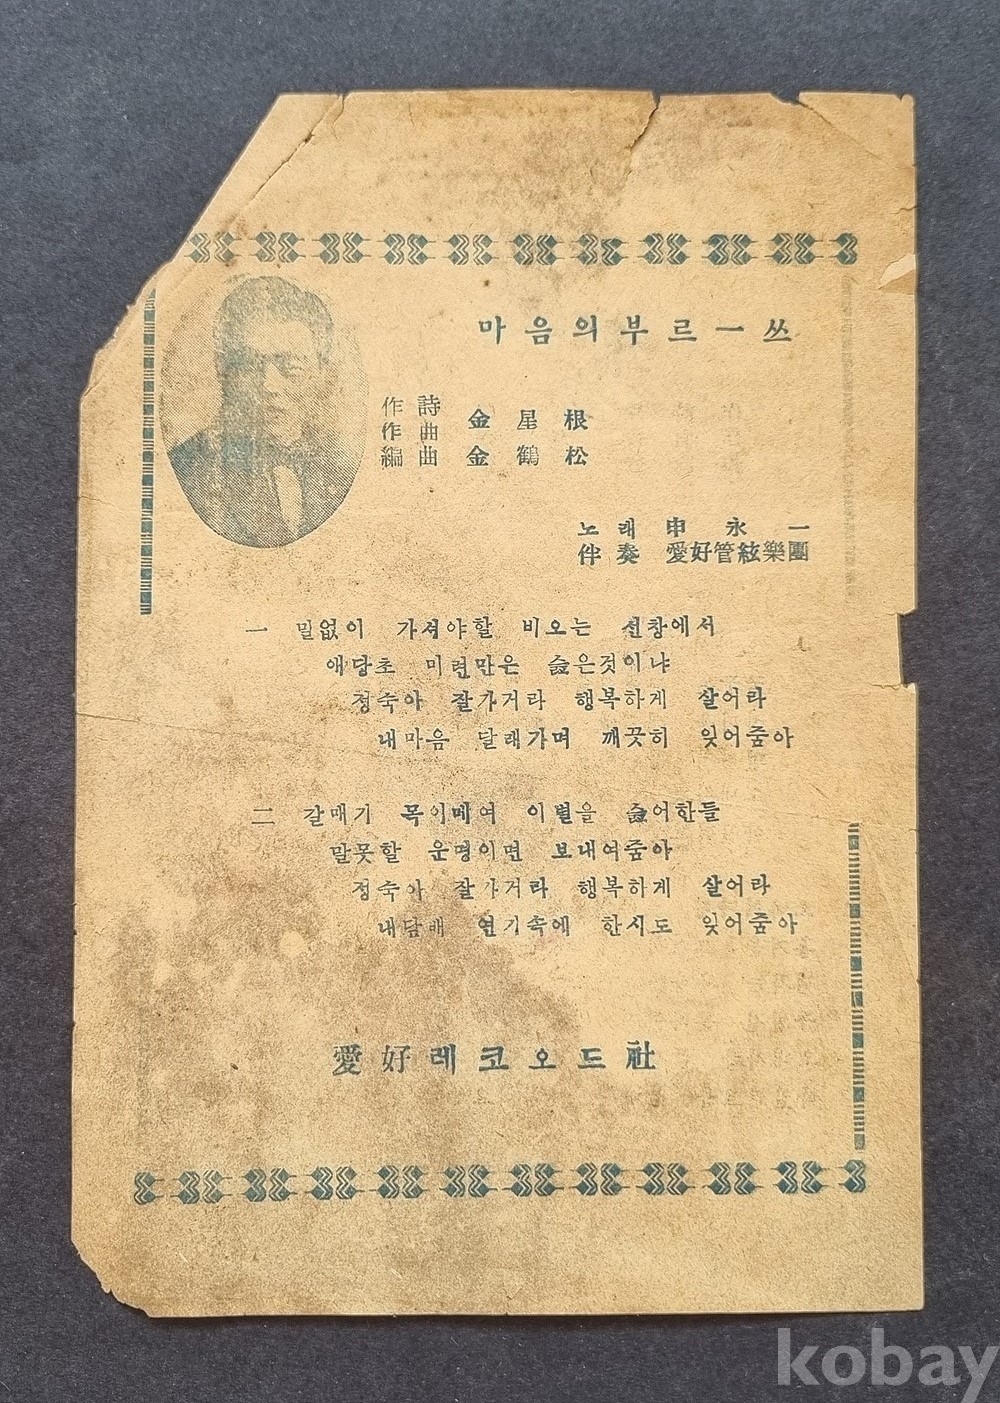 마음의부르ー쓰
作詩
作曲 金星根
編曲 金鶴松
노래 申永一
伴奏 愛好管絃樂團
一 말없이 가셔야할 비오는 선창에서
애당초 미련만은 슲은것이냐
정숙아 잘가거라 행복하게 살어라
내마음 달래가며 깨끗히 잊어줌아
二 갈매기 목이메여 이별을 슲어한들
말못할 운명이면 보내여줌아
정숙아 잘가거라 행복하게 살어라
내담배 연기속에 한시도 잊어줌아
愛好레코오드社
kobay